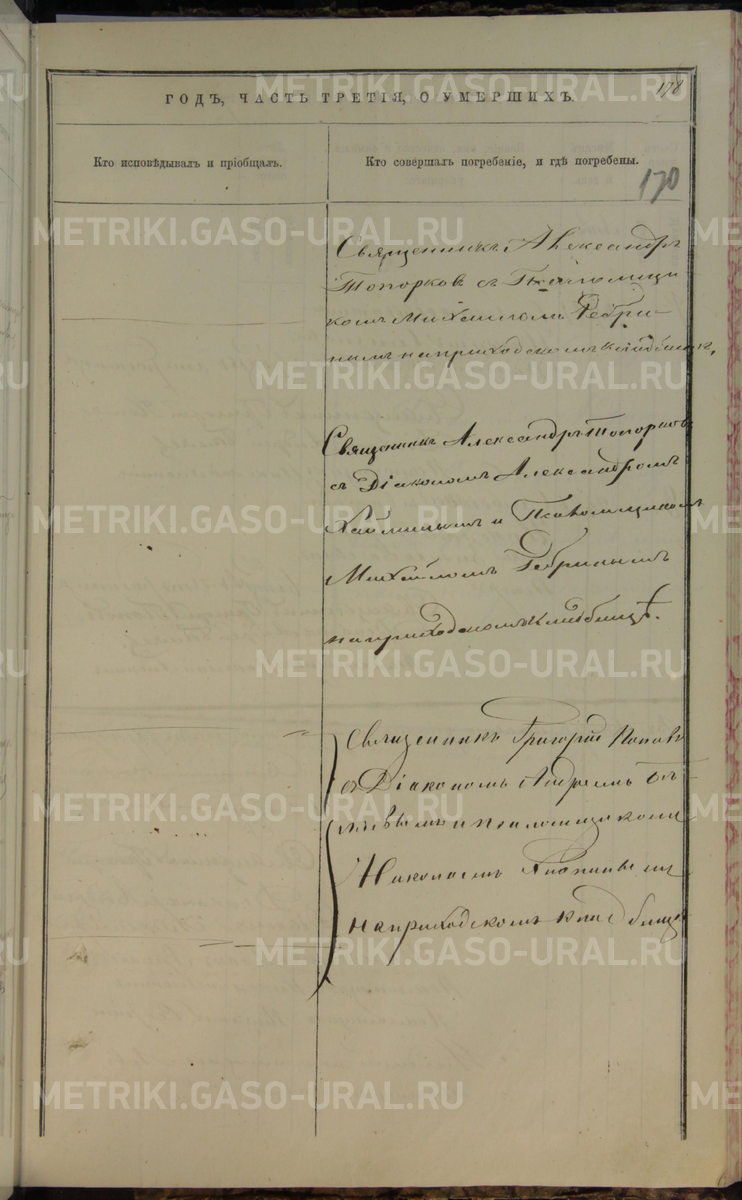 178
ГОДЪ, ЧАСТЬ ТРЕТІЯ, О УМЕРШИХЪ.
Кто исповѣдывалъ и пріобщалъ.
Кто совершалъ погребеніе, и гдѣ погребены.
170
Священникъ Александръ
Топорковъ съ Псаломщи
комъ Михаиломъ Ребри
нымъ на приходскомъ кладбищѣ.
Священникъ Александръ Топорковъ
съ Діакономъ Александромъ
и Псаломщикомъ
Михаиломъ Ребринымъ
на приходскомъ кладбищѣ.
Священникъ Григорій Поповъ
съ Діакономъ Андреемъ
и псаломщикомъ
Николаемъ
на приходскомъ кладбищѣ
METRIKI.GASO-URAL.RU